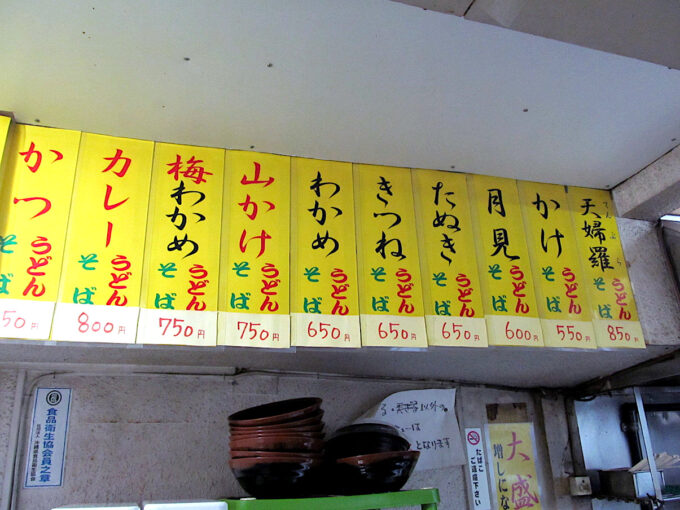 天婦羅
てんぷら
うどん
そば
850円
かけ
うどん
そば
550円
月見
うどん
そば
600円
たぬき
うどん
そば
650円
きつね
うどん
そば
650円
わかめ
うどん
そば
650円
山かけ
うどん
そば
750円
梅わかめ
うどん
そば
750円
カレー
うどん
そば
800円
かつ
うどん
そば
50円
食品衛生協会員之章
たばこ
ご遠慮下さい
大盛
増しにな
以外の
となります